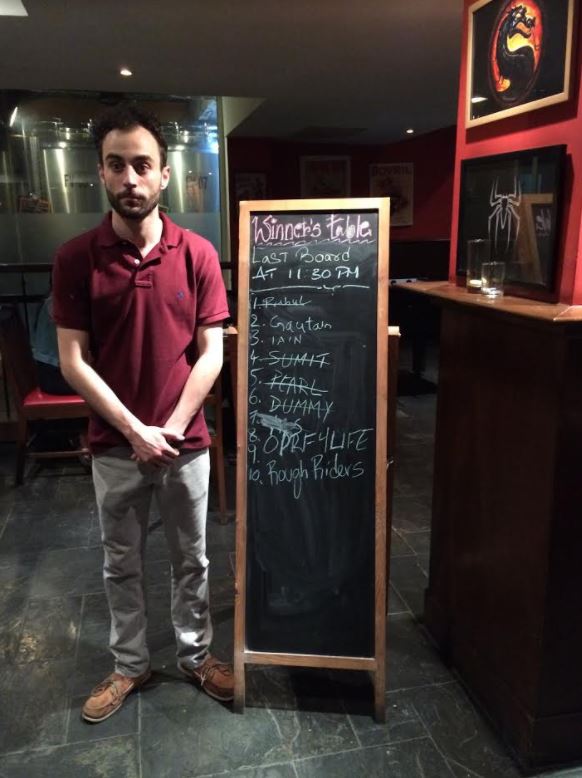 Winner's table
LAST BOARD
AT 11:30 PM
1. Rahul
2. Gautam
3. IAIN
4. SUMIT
5. PEARL
6. DUMMY
7.
8. ODRF4LIFE
9.
10. Rough Riders
BOVRIL